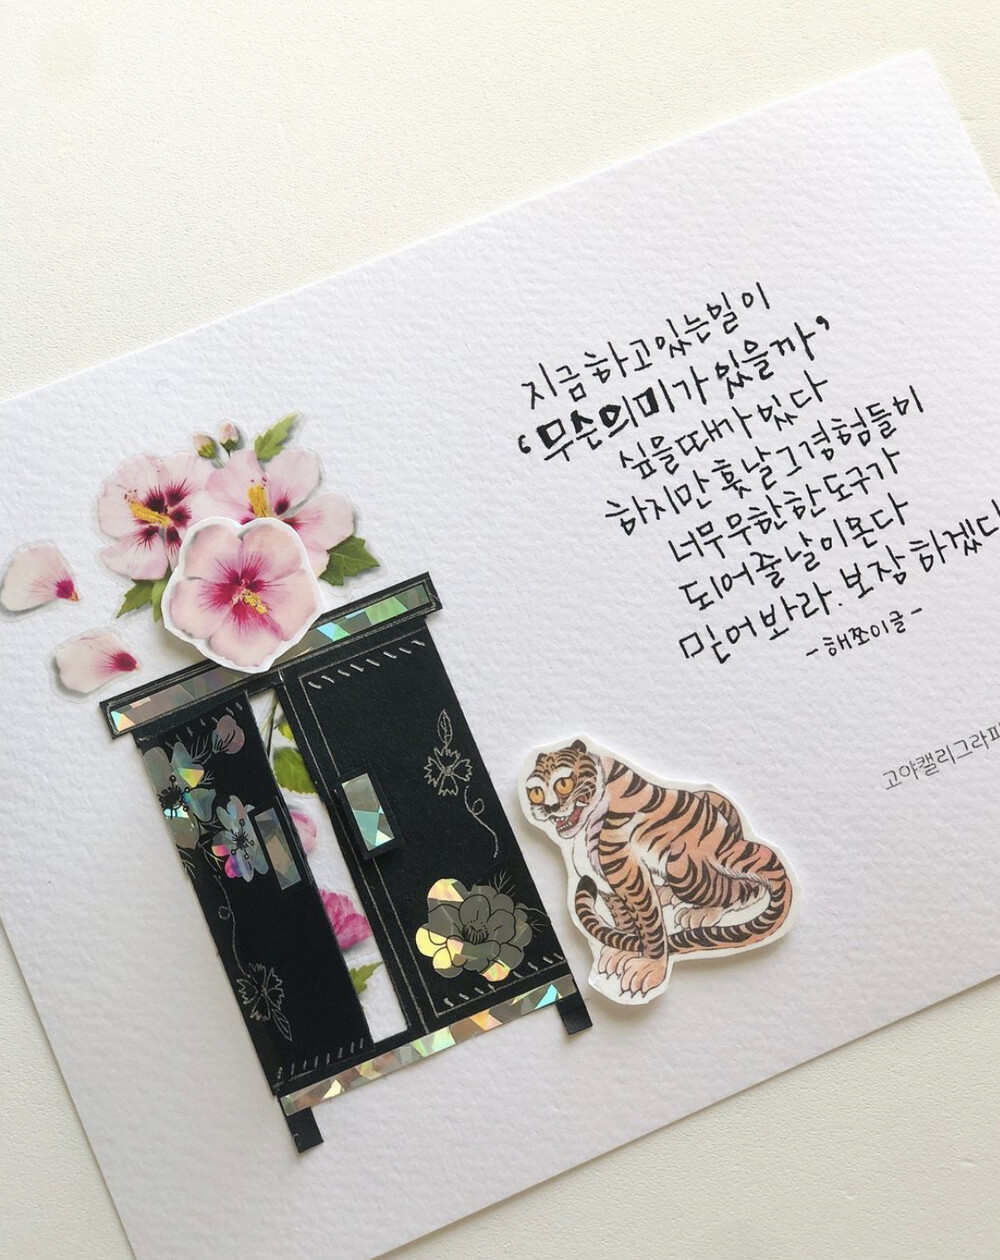 지금 하고 있는 일이
'무슨 의미가 있을까'
싶을 때가 있다
하지만 훗날 그 경험들이
너무 무한한 도구가
되어줄 날이 온다
믿어봐라. 보장하겠다
- 해쪼이글 -
고야캘리그라피